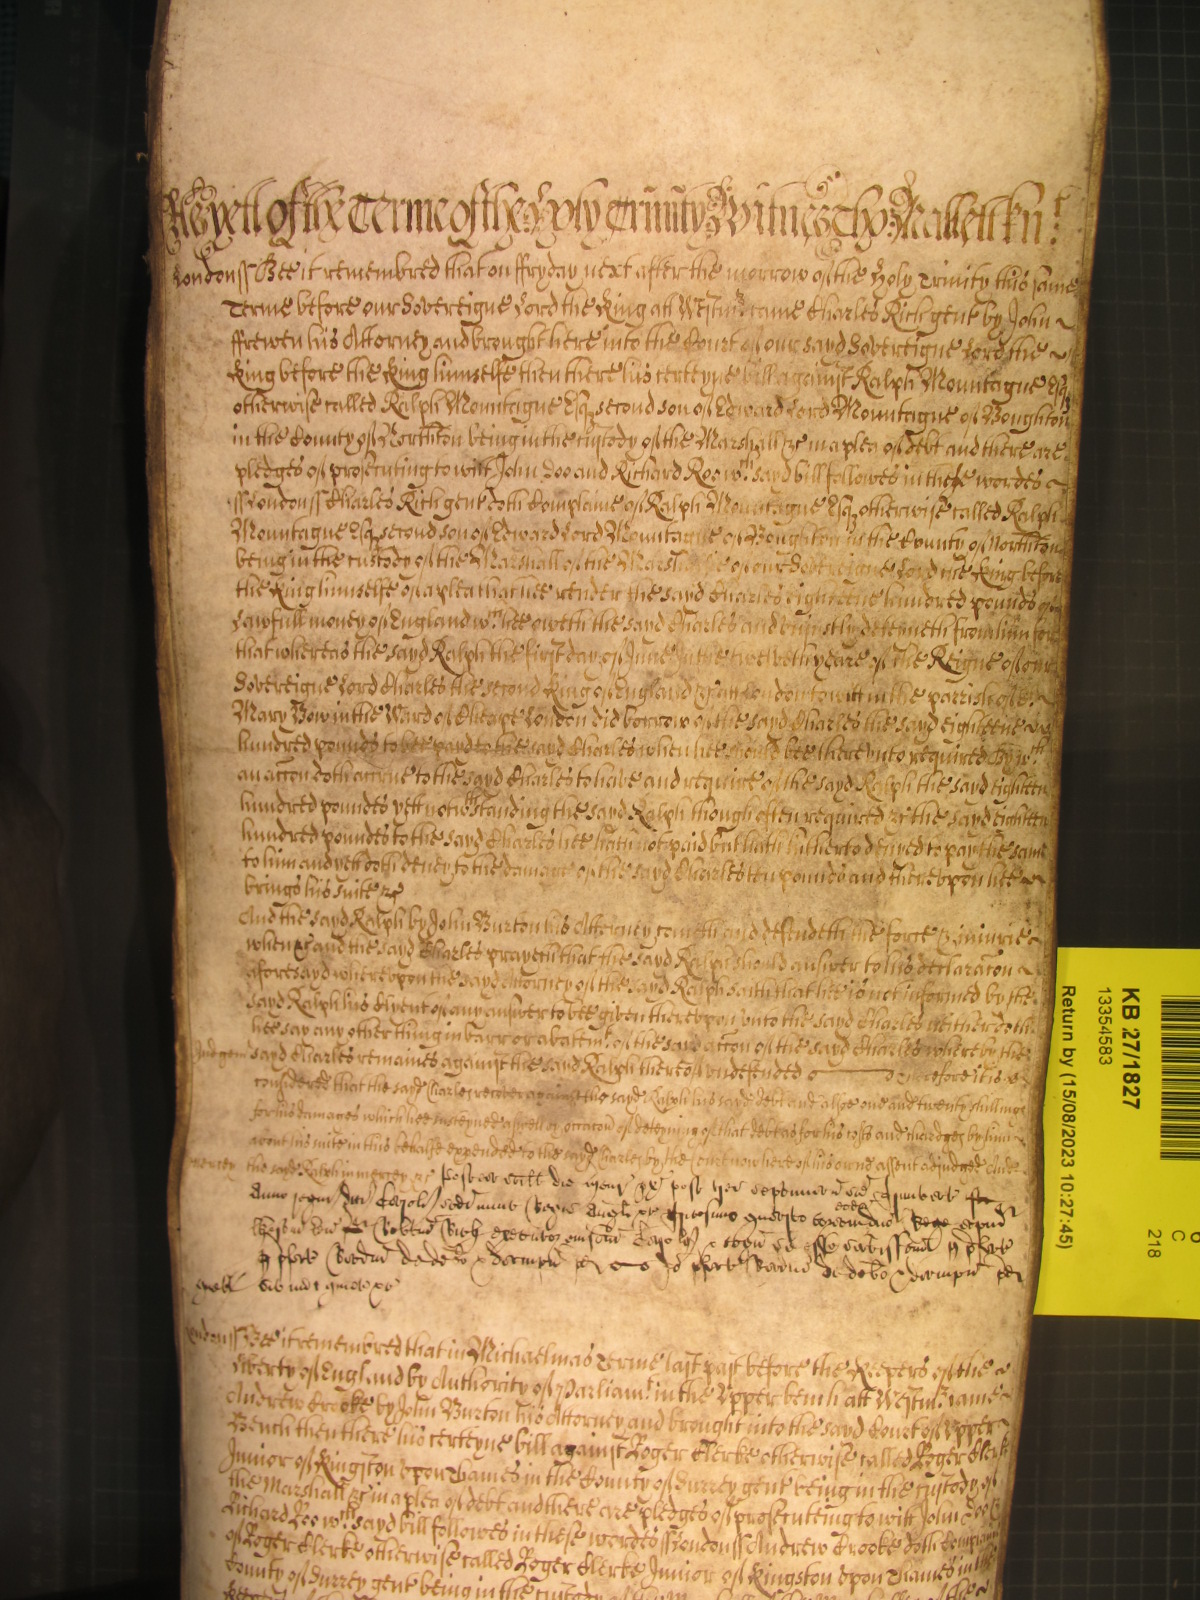 As yett of the Terme of the Holy Trinity Witnes Tho: Mallett kn.t
London ss Bee it remembred that on ffryday next after the morrow of the Holy Trinity this same
Terme before our Sovereigne Lord the King att Westm.r came Charles Rich gent by John
ffrewen his Attorney and brought here into the Court of our sayd Sovereigne Lord the
King before the King himselfe then there his certeyne bill against Ralph Mountague Esq
otherwise called Ralph Mountague Esq second son of Edward Lord Mountague of Boughton
in the County of Northton being in the custody of the Marshall &c in a plea of debt and there are
pledges of prosecuting to witt John Doo and Richard Roo w.ch sayd bill followes in these wordes
ss London ss Charles Rich gent doth complaine of Ralph Mountague Esq otherwise called Ralph
Mountague Esq second son of Edward Lord Mountague of Boughton in the County of Northton
being in the custody of the Marshall of the Marshalsie of our Sovereigne Lord the King before
the King himselfe of a plea that hee render the said Charles eighteene hundred pounds of
Lawfull money of England w.ch hee oweth the sayd Charles and unjustly deteyneth from him for
that whereas the sayd Ralph the first day of June in the twelveth yeare of the Reigne of our
Sovereigne Lord Charles the second King of England &c att London to witt in the parrish of St
Mary Bow in the Ward of Cheape London did borrow of the sayd Charles the sayd eighteene
hundred pounds to bee payd to the sayd Charles when hee should bee thereunto required By w.ch
an accon doth accrue to the sayd Charles to have and require of the sayd Ralph the sayd eighteen
hundred poundes yett notwthstanding the sayd Ralph though often required &c the sayd eighteen
hundred poundes to the sayd Charles hee hath not paid but hath hitherto denyed to pay the same
to him and yett doth deny to the damage of the sayd Charles ten poundes and thereupon hee
brings his suite &c
And the sayd Ralph by John Burton his Attorney cometh and defendeth the force & injurie
when &c and the sayd Charles prayeth that the sayd Ralph should answer to his declaracon
aforesayd whereupon the sayd Attorney of the sayd Ralph saith that hee is not informed by the
sayd Ralph his Clyent of any answer to bee given thereupon unto the sayd Charles neither doth
hee say any other thing in barr or abatem.t of the sayd accon of the sayd Charles whereby the
Judgem.t sayd Charles remaines against the sayd Ralph thereof undefended Therefore it is
considered that the sayd Charles recover against the sayd Ralph his sayd debt and alsoe one and twenty shillings
for his damages which hee susteyned aswell by occacon of deteyning of that debt as for his costs and chardges by him
about his suite in this behalfe expended to the sayd Charles by the Court now here of his owne assent adjudged And
mercy the sayd Ralph in mercy &c Postea scilt die
Anno regni Caroli secundi nunc Regis Angl &c
Rich executor
inde quiet &c
London ss Bee it remembred that in Michaelmas Terme last past before the Keepers of the
liberty of England by Authority of Parliam.t in the Upper bench att Westm.r came
Andrew Crooke by John Burton his Attorney and brought into the sayd Court of Upper
Bench then there his certeyne bill against Roger Clerke otherwise called Roger Clerke
Junior of Kingston upon Thames in the County of Surrey gent being in the custody of
the Marshall &c in a plea of debt and there are pledges of prosecuteing to witt John Doo &
Richard Roo w.ch sayd bill followes in these wordes ss London ss Andrew Crooke doth complaine
of Roger Clerke otherwise called Roger Clerke Junior of Kingston upon Thames in the
County of Surrey gent being in the custody of
KB 27/1827
13354583
Return by (15/08/2023 10:27:45)
C
218